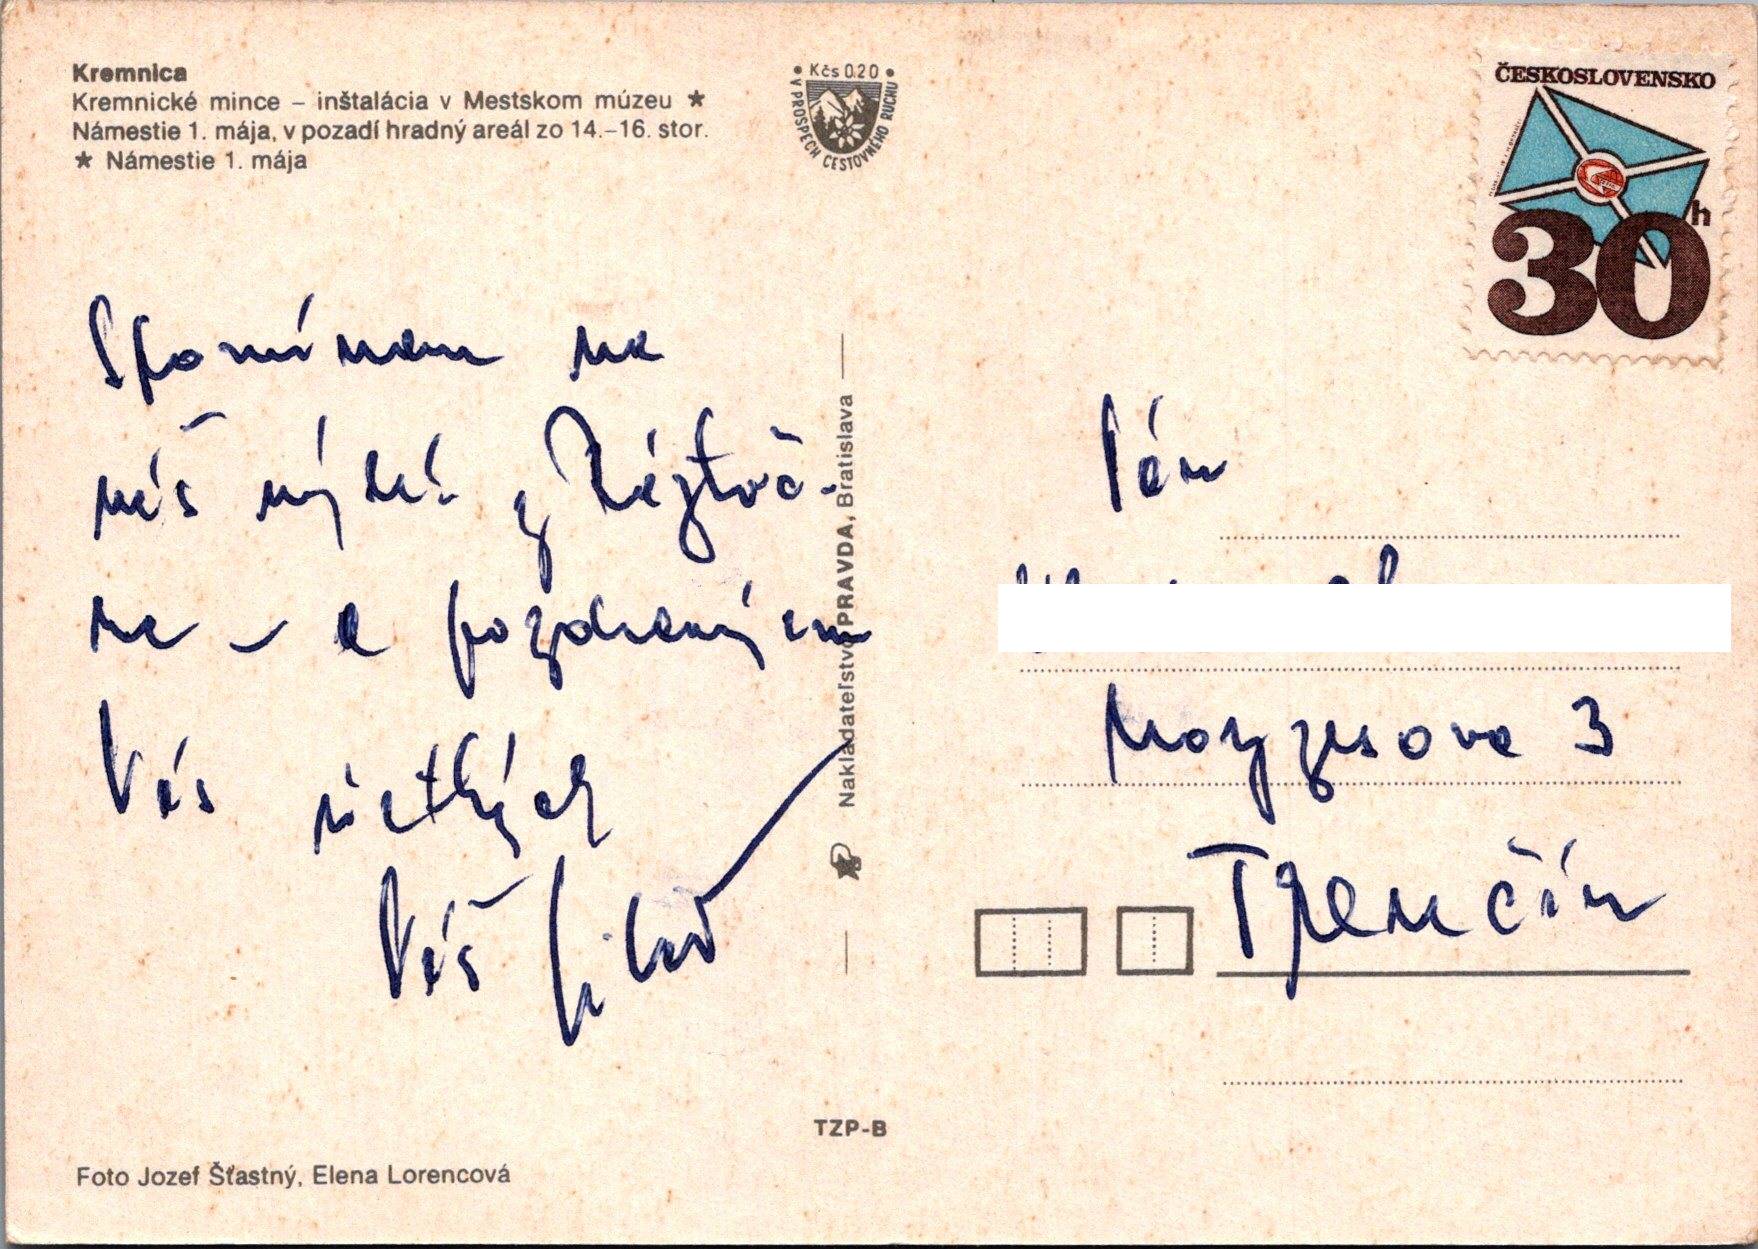 Kremnica
Kremnické mince – inštalácia v Mestskom múzeu ★
Námestie 1. mája, v pozadí hradný areál zo 14.–16. stor.
★ Námestie 1. mája
• Kčs 0.20 •
V PROSPECH CESTOVNÉHO RUCHU
ČESKOSLOVENSKO
30 h
Spomínam na
náš výlet z Ráztoč-
na – a pozdravujem
Vás všetkých
Váš
Nakladateľstvo PRAVDA, Bratislava
Pán
Moyzesova 3
Trenčín
TZP-B
Foto Jozef Šťastný, Elena Lorencová